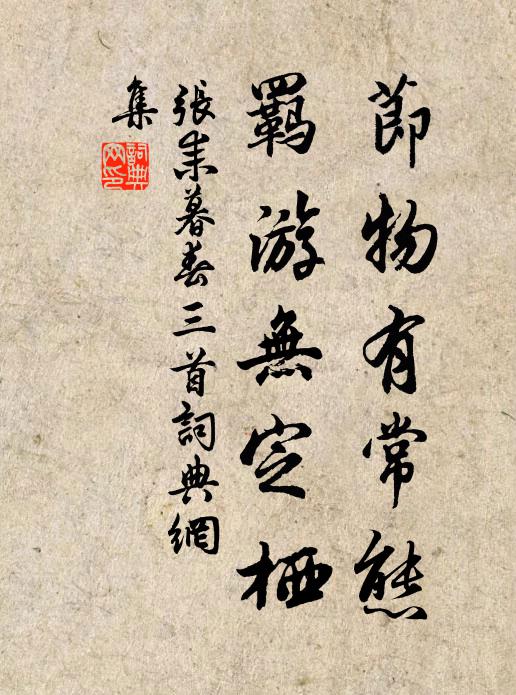 節物有常態
羈游無定栖
張耒暮春三首詞典網
集
詞典網印